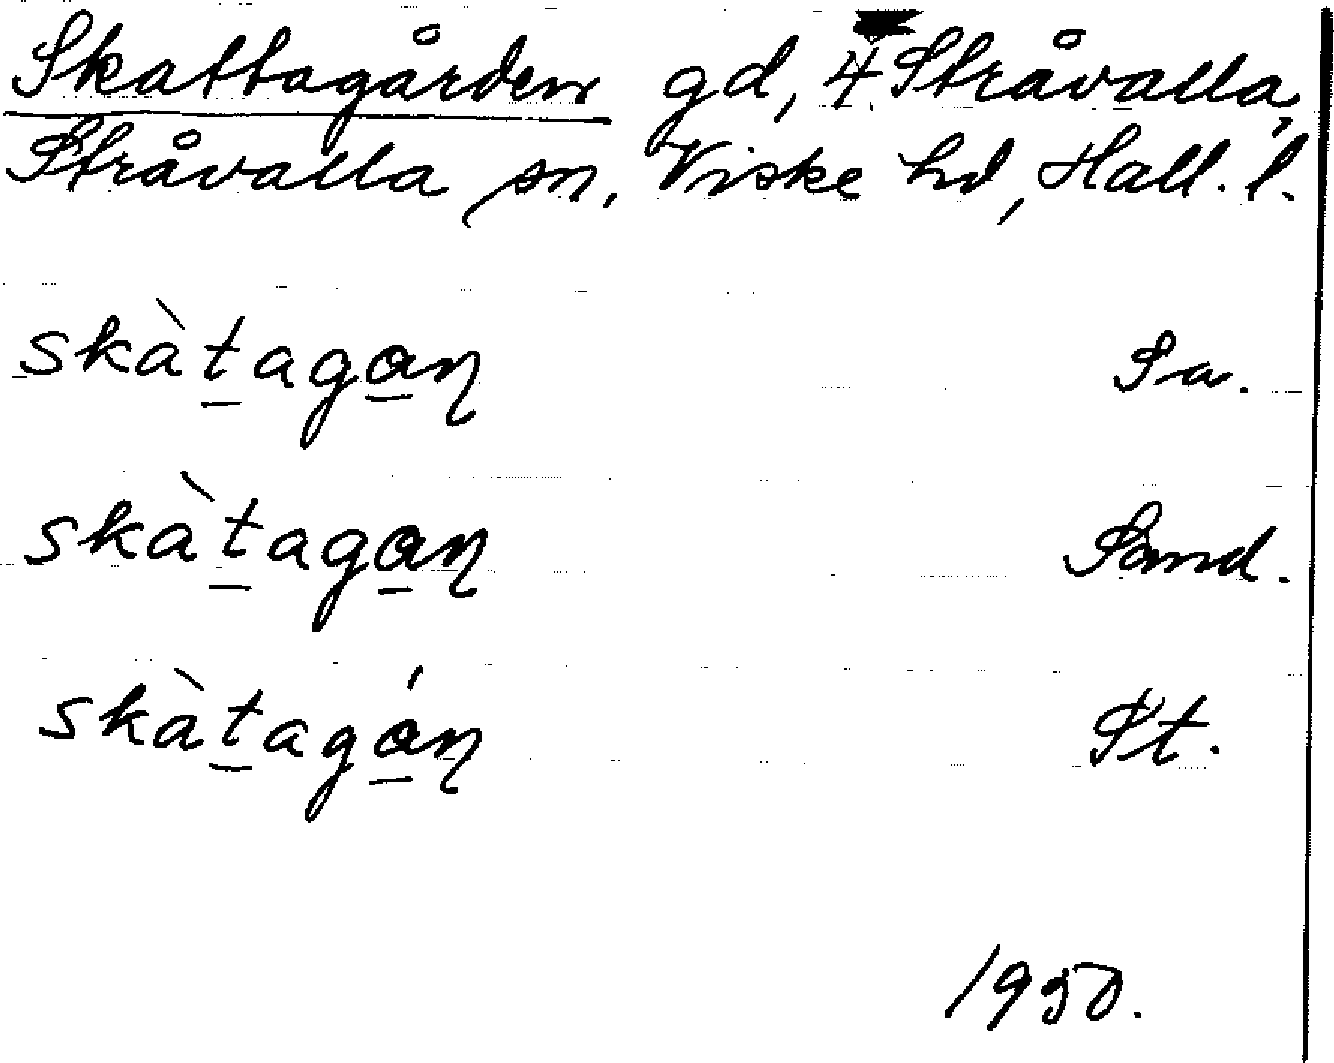 Skattagården gd, 4 Stråvalla,
Stråvalla sn, Viske hd, Hall. l.
skàtagaɳ Sa.
skàtagaɳ Sand.
skàtagáɳ St.
1950.